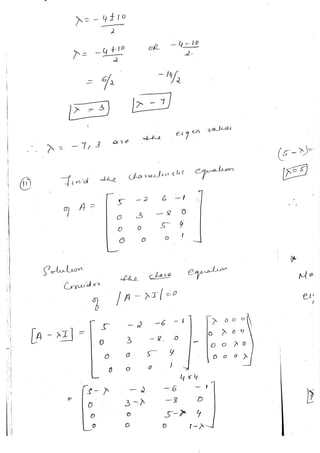 λ = -4 ± 10
2
λ = -4 + 10 / 2 OR -4 - 10 / 2
= 6/2 -14/2
λ = 3 λ - 7
∴ λ = -7, 3 are the eigen values
(5 - λ) =
λ = 5
(11) Find the characteristic equation
of A = [ 5 -2 6 -1
0 3 -8 0
0 0 5 4
0 0 0 1 ]
Solution
Consider the chara equation
of |A - λI| = 0
[A - λI] = [ 5 -2 -6 -1
0 3 -8 0
0 0 5 4
0 0 0 1 ] 4x4 - [ λ 0 0 0
0 λ 0 0
0 0 λ 0
0 0 0 λ ]
= [ 5-λ -2 -6 -1
0 3-λ -8 0
0 0 5-λ 4
0 0 0 1-λ ]